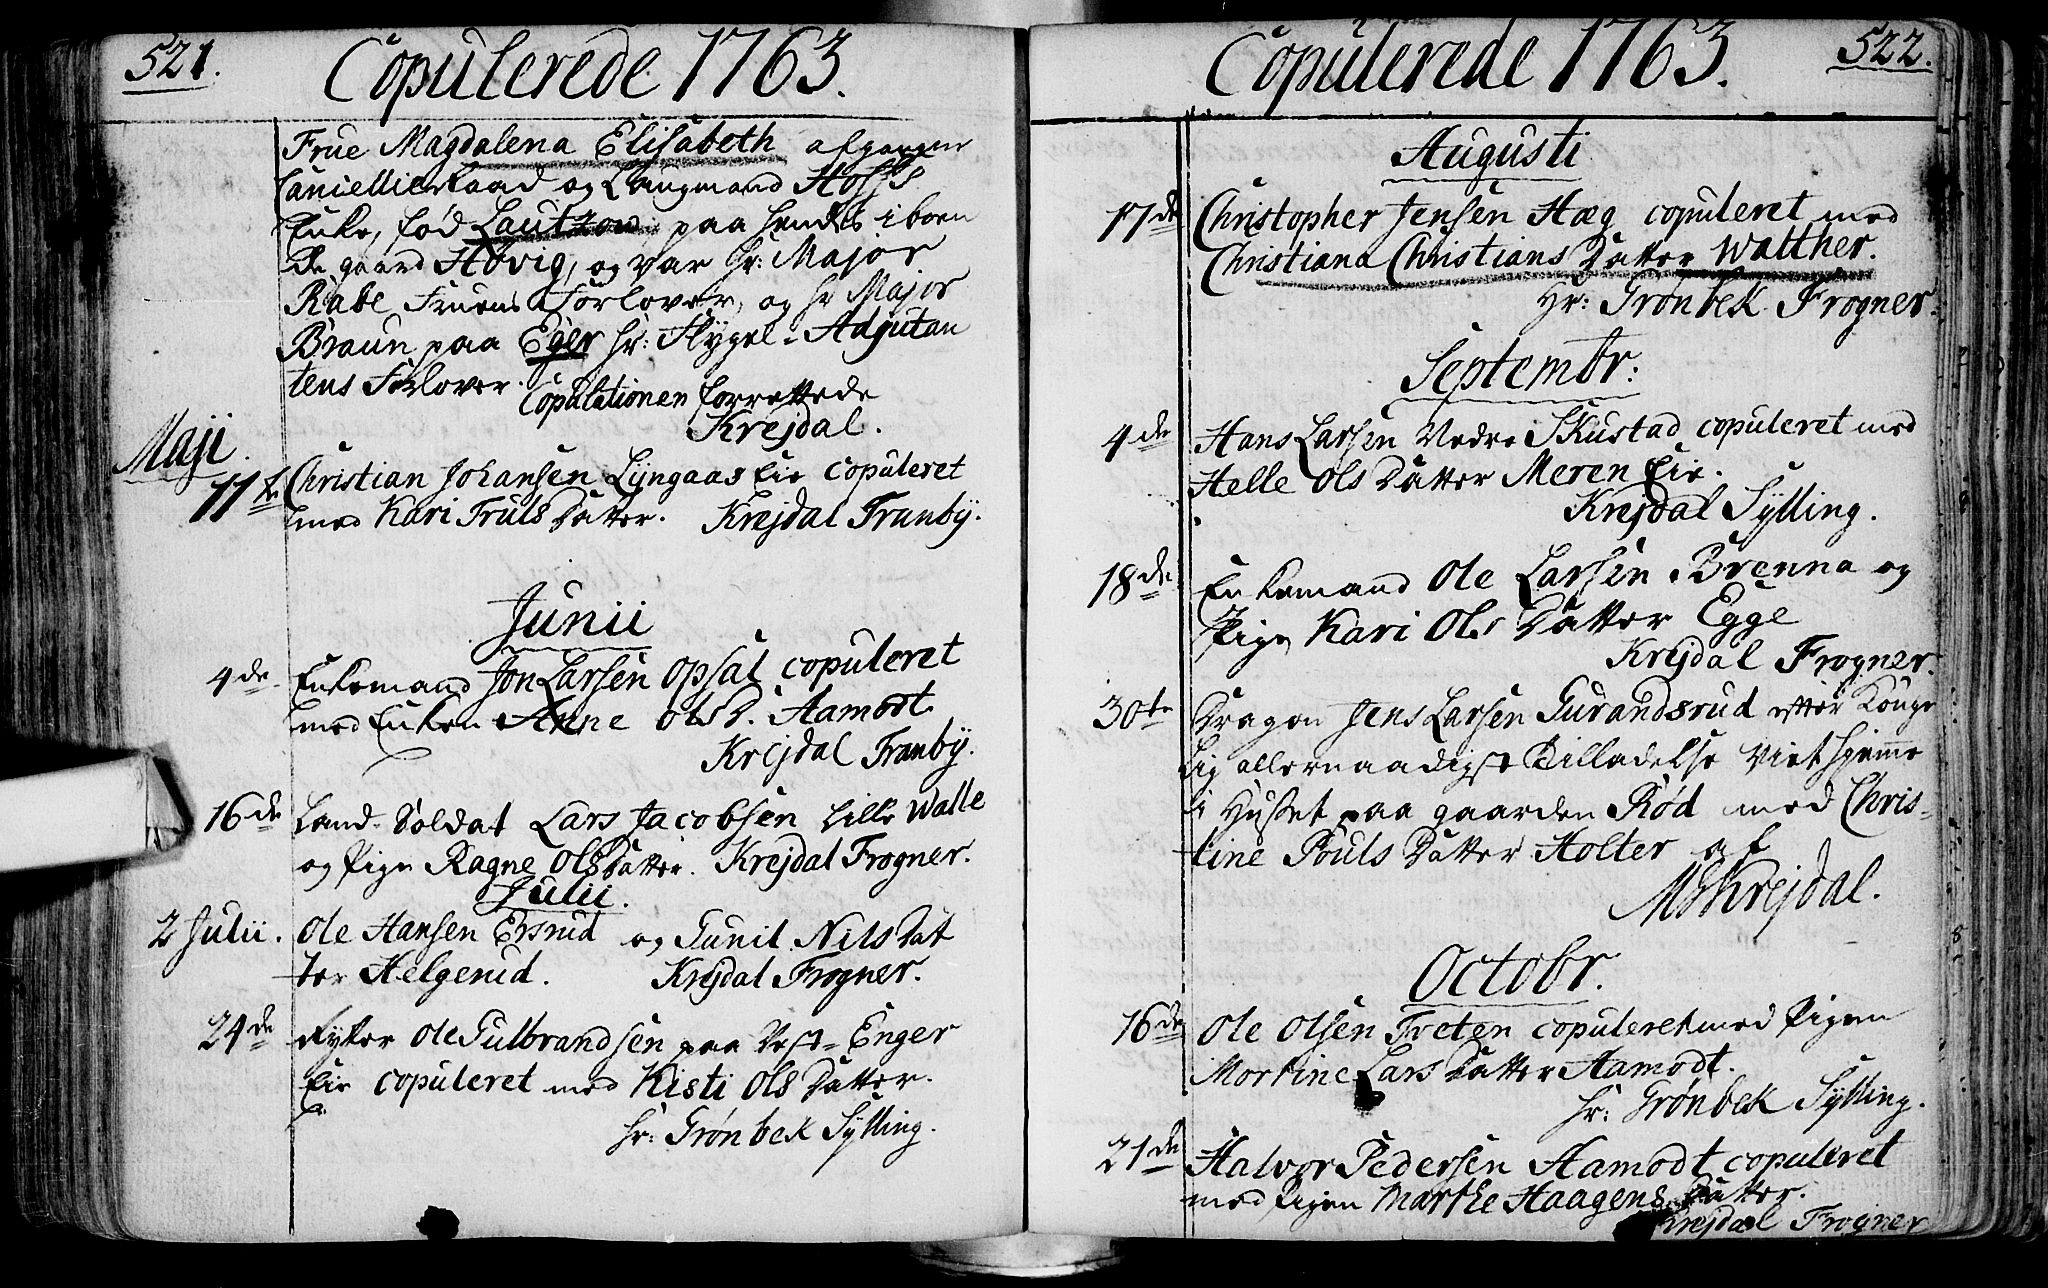 521.
Copulerede 1763.
Frue Magdalena Elisabeth afgangne
Cancellieraad og Laugmand Hoffs
Enke, fød Lautzow, paa hendes iboen
de gaard Høvig, og var Hr: Major
Rabe Fruens Forlover, og Hr Major
Braun paa Eger Hr: Flygel-Adjutan
tens Forlover.
Copulationen forrettede
Krejdal.
Maji.
11te Christian Johansen Lyngaas Eie copuleret
med Kari Truls Datter. Krejdal Tranby.
Junii
4de Enkemand Jon Larsen Opsal copuleret
med Enken Anne Ols D. Aamodt
Krejdal Tranby.
16de Land-Soldat Lars Jacobsen Lille Walle
og Pige Ragne Ols Datter. Krejdal Frogner.
Julii.
2 Julii. Ole Hansen Ersrud og Gunil Nils Dat
ter Helgerud. Krejdal Frogner.
24de Rytter Ole Gulbrandsen paa Vest-Enger
Eie copuleret med Kisti Ols Datter.
Hr: Grønbek Sylling.
522.
Copulerede 1763.
Augusti
17de Christopher Jensen Hæg copuleret med
Christiana Christians Datter Walther.
Hr: Grønbek Frogner.
Septembr:
4de Hans Larsen Nedre Skustad copuleret med
Helle Ols Datter Meren Eie.
Krejdal Sylling.
18de Enkemand Ole Larsen Brenna og
Pige Kari Ols Datter Egge
Krejdal Frogner.
30te Dragon Jens Larsen Gurandsrud efter Konge
lig allernaadigst Tilladelse Viet hjemme
i Huset paa gaarden Rød med Chris-
tine Pouls Datter Holter af
Krejdal.
Octobr.
16de Ole Olsen Treten copuleret med Pigen
Mortine Lars Datter Aamodt.
Hr: Grønbek Sylling.
21de Halvor Pedersen Aamodt copuleret
med Pigen Marthe Haagens Datter.
Krejdal Frogner